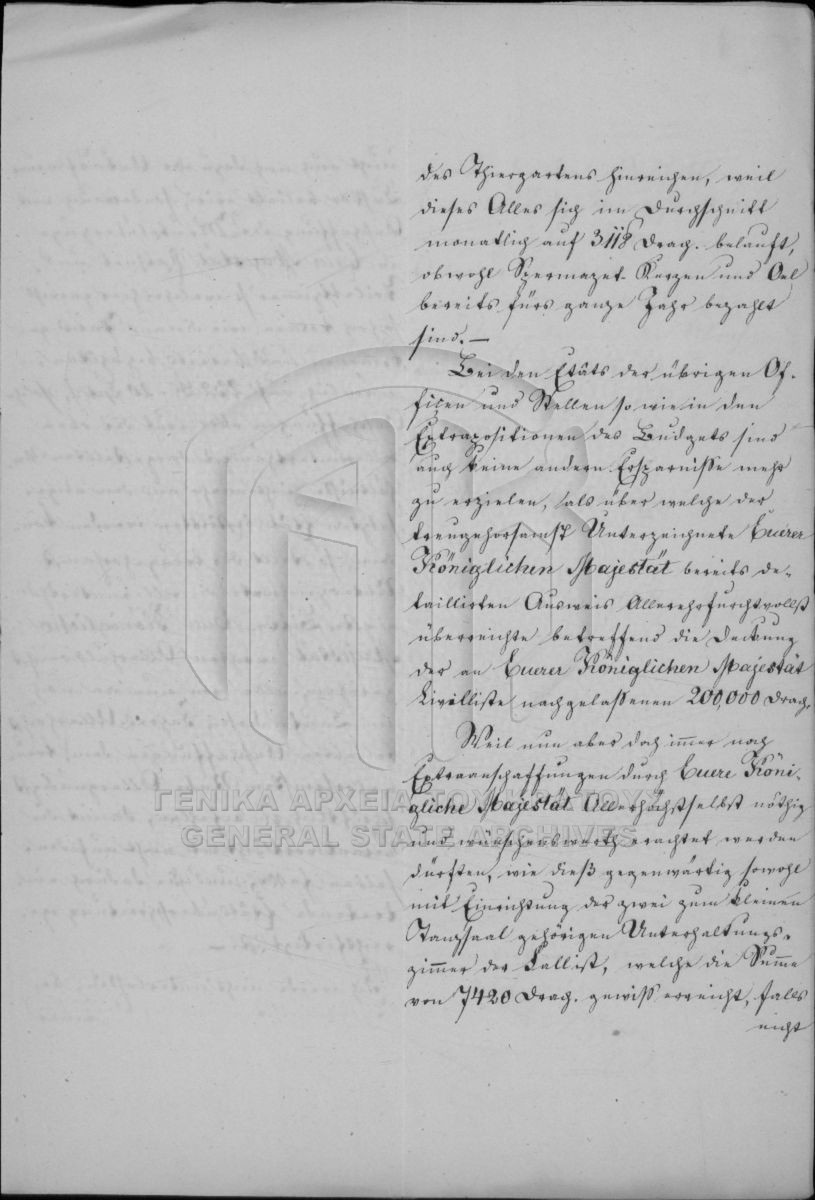 des Thiergartens hinreichen, weil
dieses Alles sich im Durchschnitt
monatlich auf 3118 Drach. belauft,
obwohl Spermazet-Kerzen und Oel
bereits fürs ganze Jahr bezahlt
sind. —
Bei den Etâts der übrigen Of-
fizen und Stellen so wie in den
Extrapositionen des Budgets sind
auch keine andern Ersparnisse mehr
zu erzielen, als über welche der
treugehorsamst Unterzeichnete Euerer
Königlichen Majestät bereits de-
taillirten Ausweis Allerehrfurchtvollst
überreichte betreffend die Deckung
der an Euerer Königlichen Majestät
Civilliste nachgelaßenen 200,000 Drach.
Weil nun aber doch immer noch
Extraanschaffungen durch Euere Köni-
gliche Majestät Allerhöchstselbst nöthig
und wünschenswerth erachtet werden
dürften, wie dieß gegenwärtig sowohl
mit Einrichtung der zwei zum kleinen
Tanzsaal gehörigen Unterhaltungs-
zimmer der Fall ist, welche die Summe
von 7420 Drach. gewiß erreicht, falls
nicht
ΓΕΝΙΚΑ ΑΡΧΕΙΑ ΤΟΥ ΚΡΑΤΟΥΣ
GENERAL STATE ARCHIVES